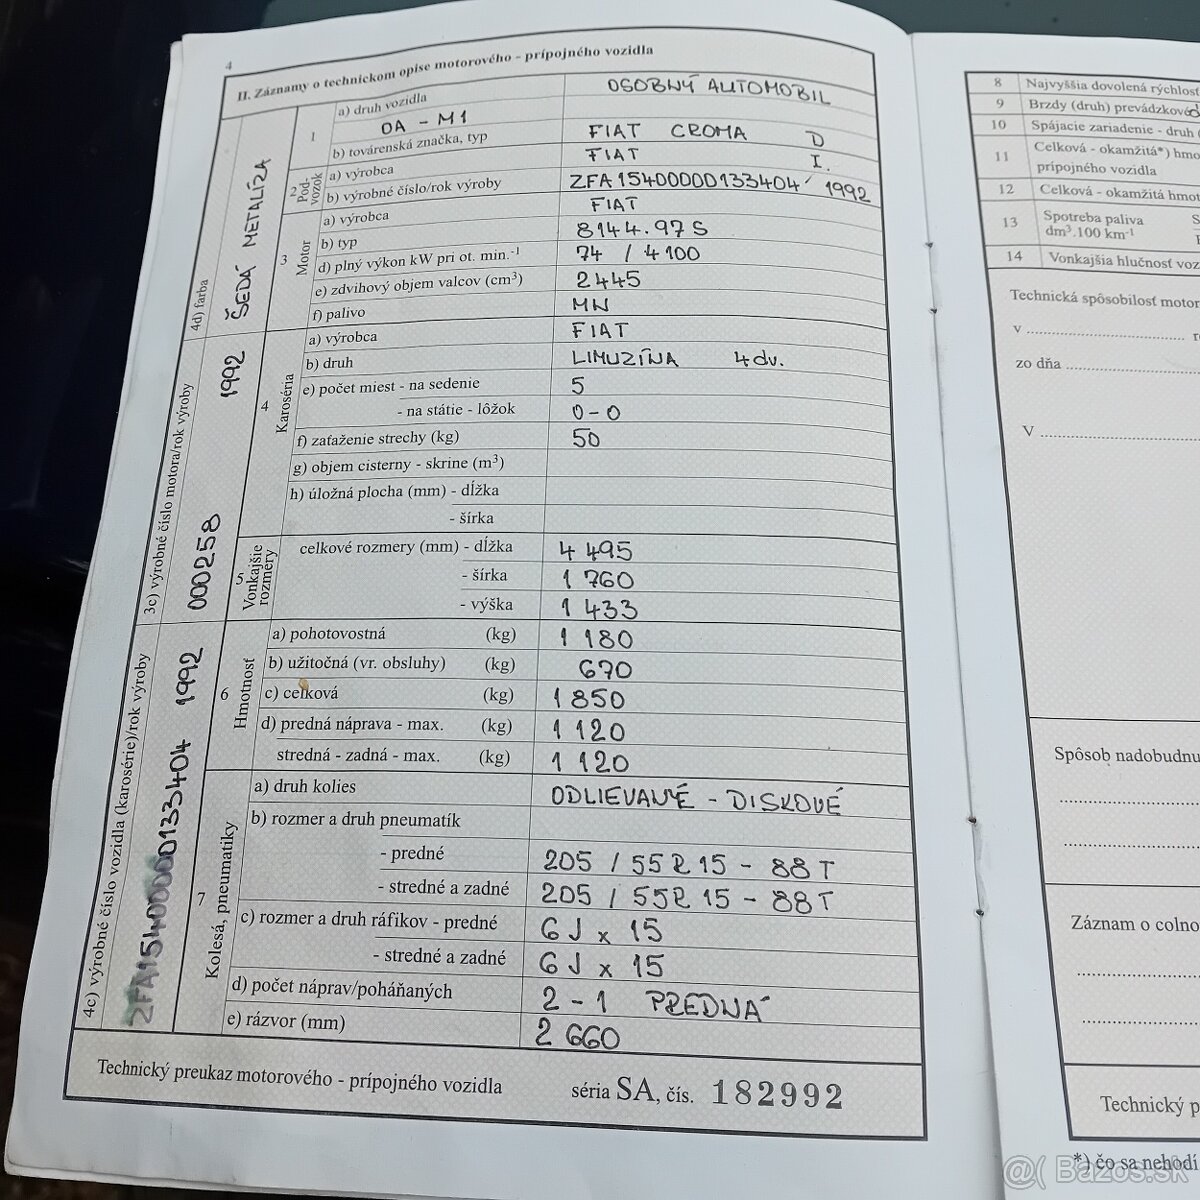 4
II. Záznamy o technickom opise motorového - prípojného vozidla
1 a) druh vozidla OSOBNÝ AUTOMOBIL
OA - M1
b) továrenská značka, typ FIAT CROMA D
2 Podvozok a) výrobca FIAT I.
b) výrobné číslo/rok výroby ZFA15400000133404 1992
3 Motor a) výrobca FIAT
b) typ 8144.97S
d) plný výkon kW pri ot. min.-1 74 / 4100
e) zdvihový objem valcov (cm3) 2445
f) palivo MN
4 Karoséria a) výrobca FIAT
b) druh LIMUZÍNA 4dv.
e) počet miest - na sedenie 5
- na státie - lôžok 0-0
f) zaťaženie strechy (kg) 50
g) objem cisterny - skrine (m3)
h) úložná plocha (mm) - dĺžka
- šírka
5 Vonkajšie rozmery celkové rozmery (mm) - dĺžka 4 495
- šírka 1 760
- výška 1 433
6 Hmotnosť a) pohotovostná (kg) 1 180
b) užitočná (vr. obsluhy) (kg) 670
c) celková (kg) 1 850
d) predná náprava - max. (kg) 1 120
stredná - zadná - max. (kg) 1 120
7 Kolesá, pneumatiky a) druh kolies ODLIEVANÉ - DISKOVÉ
b) rozmer a druh pneumatík
- predné 205 / 55R15 - 88T
- stredné a zadné 205 / 55R15 - 88T
c) rozmer a druh ráfikov - predné 6J x 15
- stredné a zadné 6J x 15
d) počet náprav/poháňaných 2 - 1 PREDNÁ
e) rázvor (mm) 2 660
4d) farba ŠEDÁ METALÍZA
3c) výrobné číslo motora/rok výroby 000258 1992
4c) výrobné číslo vozidla (karosérie)/rok výroby ZFA15400000133404 1992
Technický preukaz motorového - prípojného vozidla séria SA, čís. 182992
8 Najvyššia dovolená rýchlosť
9 Brzdy (druh) prevádzková
10 Spájacie zariadenie - druh (
11 Celková - okamžitá*) hmo
prípojného vozidla
12 Celková - okamžitá hmot
13 Spotreba paliva S
dm3.100 km-1
14 Vonkajšia hlučnosť voz
Technická spôsobilosť motor
v
zo dňa
V
Spôsob nadobudnu
Záznam o colno
Technický p
*) čo sa nehodí
@( Bazos.sk